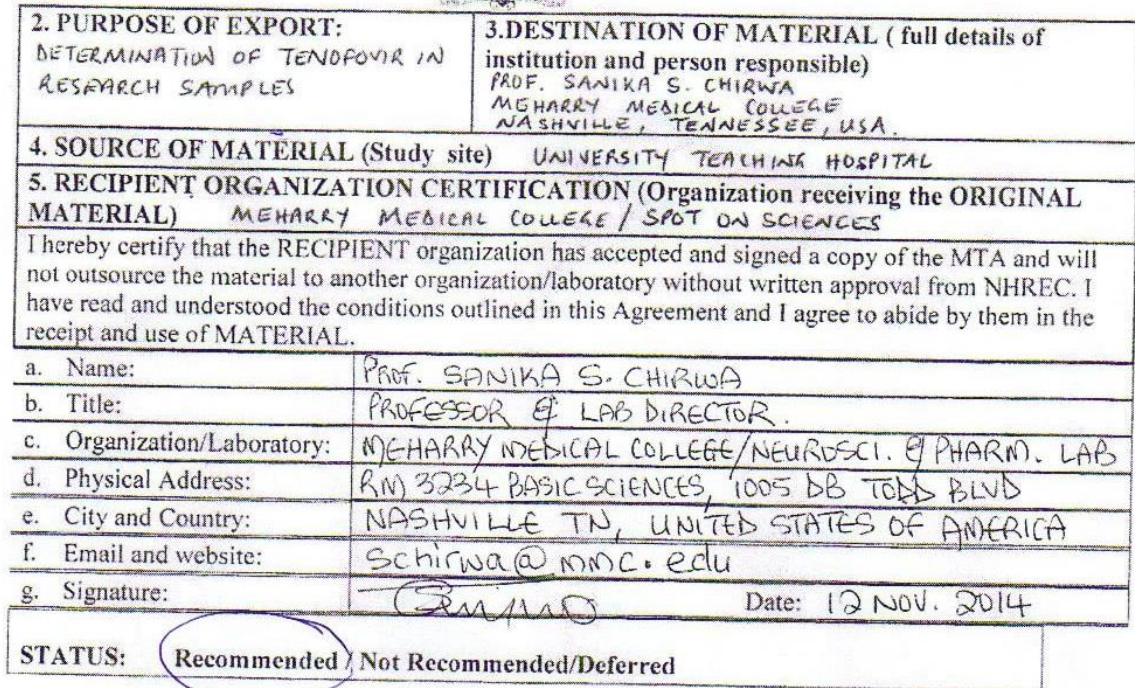 2. PURPOSE OF EXPORT:
DETERMINATION OF TENOFOVIR IN
RESEARCH SAMPLES
3.DESTINATION OF MATERIAL ( full details of
institution and person responsible)
PROF. SANIKA S. CHIRWA
MEHARRY MEDICAL COLLEGE
NASHVILLE, TENNESSEE, USA.
4. SOURCE OF MATERIAL (Study site) UNIVERSITY TEACHING HOSPITAL
5. RECIPIENT ORGANIZATION CERTIFICATION (Organization receiving the ORIGINAL
MATERIAL) MEHARRY MEDICAL COLLEGE / SPOT ON SCIENCES
I hereby certify that the RECIPIENT organization has accepted and signed a copy of the MTA and will
not outsource the material to another organization/laboratory without written approval from NHREC. I
have read and understood the conditions outlined in this Agreement and I agree to abide by them in the
receipt and use of MATERIAL.
a. Name: PROF. SANIKA S. CHIRWA
b. Title: PROFESSOR & LAB DIRECTOR.
c. Organization/Laboratory: MEHARRY MEDICAL COLLEGE/NEUROSCI. & PHARM. LAB
d. Physical Address: RM 3234 BASIC SCIENCES, 1005 DB TODD BLVD
e. City and Country: NASHVILLE TN, UNITED STATES OF AMERICA
f. Email and website: schirwa@mmc.edu
g. Signature: Date: 12 NOV. 2014
STATUS: Recommended / Not Recommended/Deferred